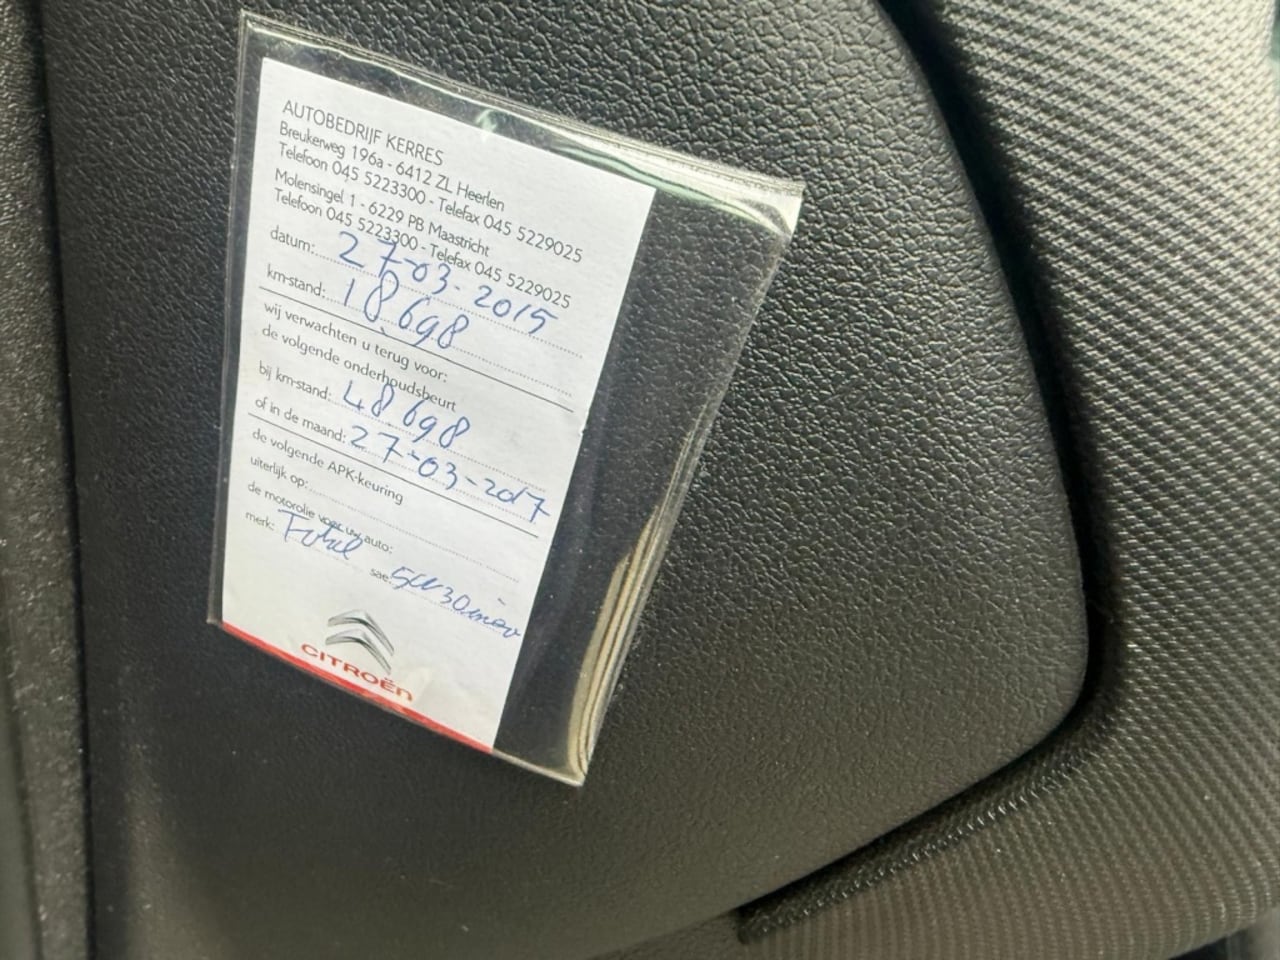 AUTOBEDRIJF KERRES
Breukerweg 196a - 6412 ZL Heerlen
Telefoon 045 5223300 - Telefax 045 5229025
Molensingel 1 - 6229 PB Maastricht
Telefoon 045 5223300 - Telefax 045 5229025
datum: 27-03-2015
km-stand: 18.698
wij verwachten u terug voor:
de volgende onderhoudsbeurt
bij km-stand: 48698
of in de maand: 27-03-2017
de volgende APK-keuring
uiterlijk op:
de motorolie voor uw auto:
merk: Total
sae: 5W30
CITROËN